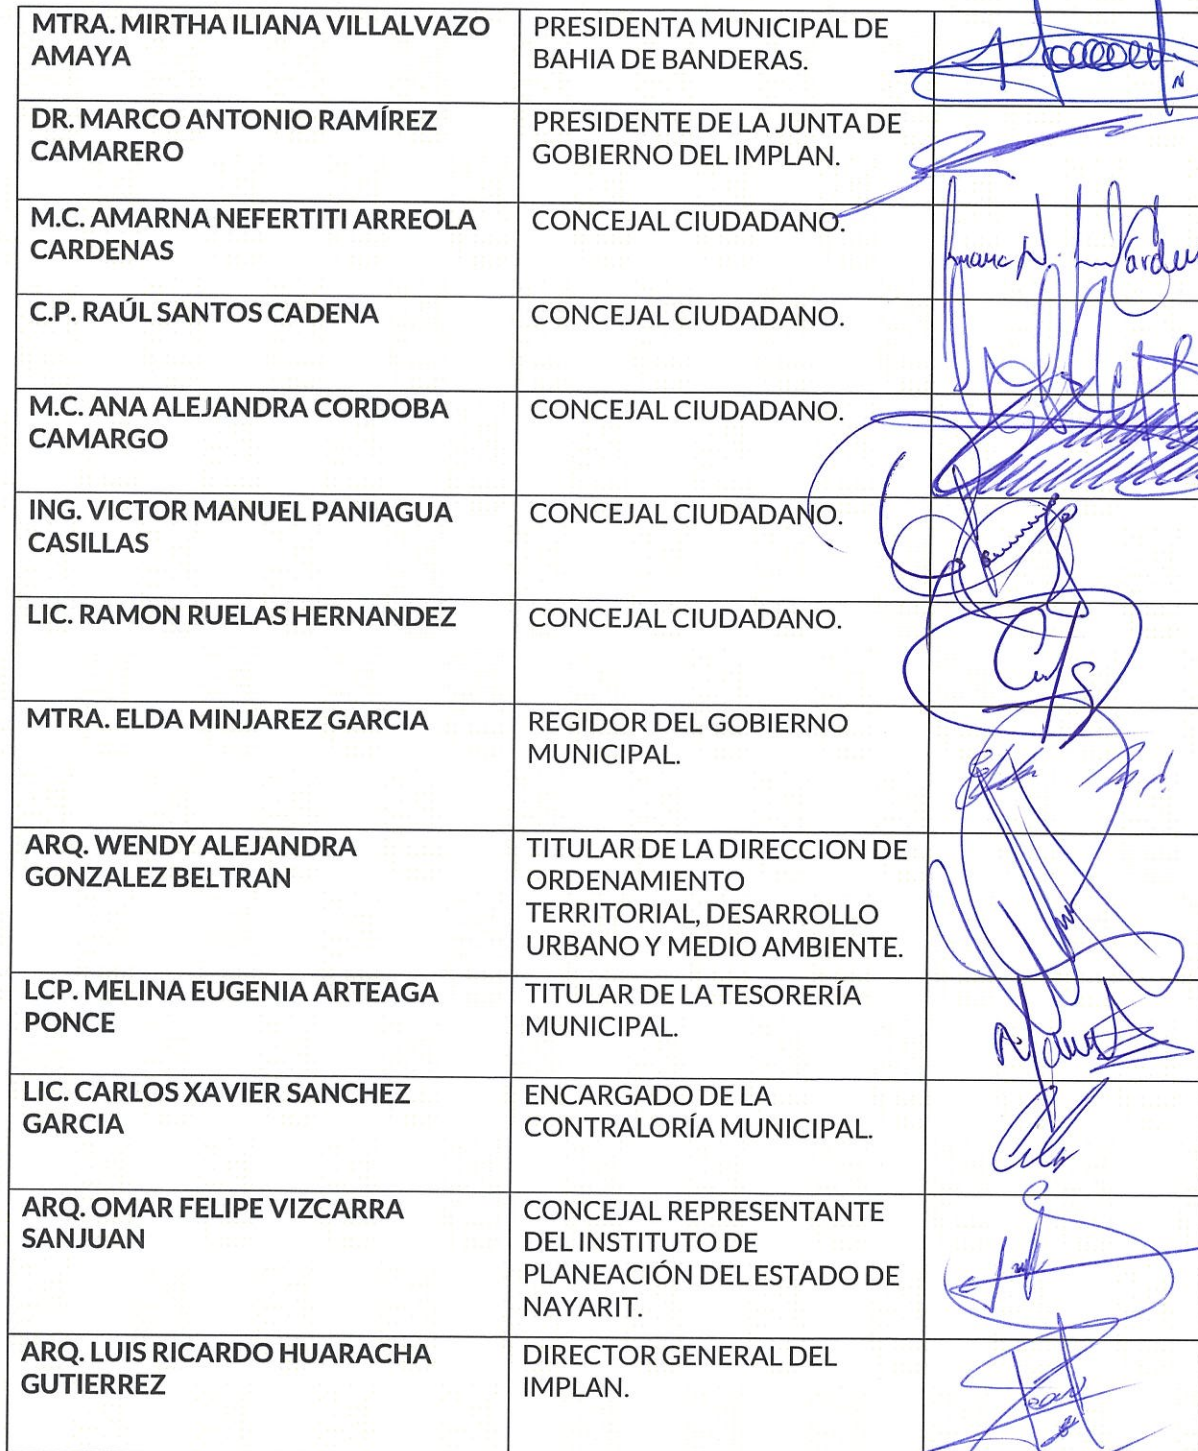 MTRA. MIRTHA ILIANA VILLALVAZO
AMAYA
PRESIDENTA MUNICIPAL DE
BAHIA DE BANDERAS.
DR. MARCO ANTONIO RAMÍREZ
CAMARERO
PRESIDENTE DE LA JUNTA DE
GOBIERNO DEL IMPLAN.
M.C. AMARNA NEFERTITI ARREOLA
CARDENAS
CONCEJAL CIUDADANO.
C.P. RAÚL SANTOS CADENA
CONCEJAL CIUDADANO.
M.C. ANA ALEJANDRA CORDOBA
CAMARGO
CONCEJAL CIUDADANO.
ING. VICTOR MANUEL PANIAGUA
CASILLAS
CONCEJAL CIUDADANO.
LIC. RAMON RUELAS HERNANDEZ
CONCEJAL CIUDADANO.
MTRA. ELDA MINJAREZ GARCIA
REGIDOR DEL GOBIERNO
MUNICIPAL.
ARQ. WENDY ALEJANDRA
GONZALEZ BELTRAN
TITULAR DE LA DIRECCION DE
ORDENAMIENTO
TERRITORIAL, DESARROLLO
URBANO Y MEDIO AMBIENTE.
LCP. MELINA EUGENIA ARTEAGA
PONCE
TITULAR DE LA TESORERÍA
MUNICIPAL.
LIC. CARLOS XAVIER SANCHEZ
GARCIA
ENCARGADO DE LA
CONTRALORÍA MUNICIPAL.
ARQ. OMAR FELIPE VIZCARRA
SANJUAN
CONCEJAL REPRESENTANTE
DEL INSTITUTO DE
PLANEACIÓN DEL ESTADO DE
NAYARIT.
ARQ. LUIS RICARDO HUARACHA
GUTIERREZ
DIRECTOR GENERAL DEL
IMPLAN.